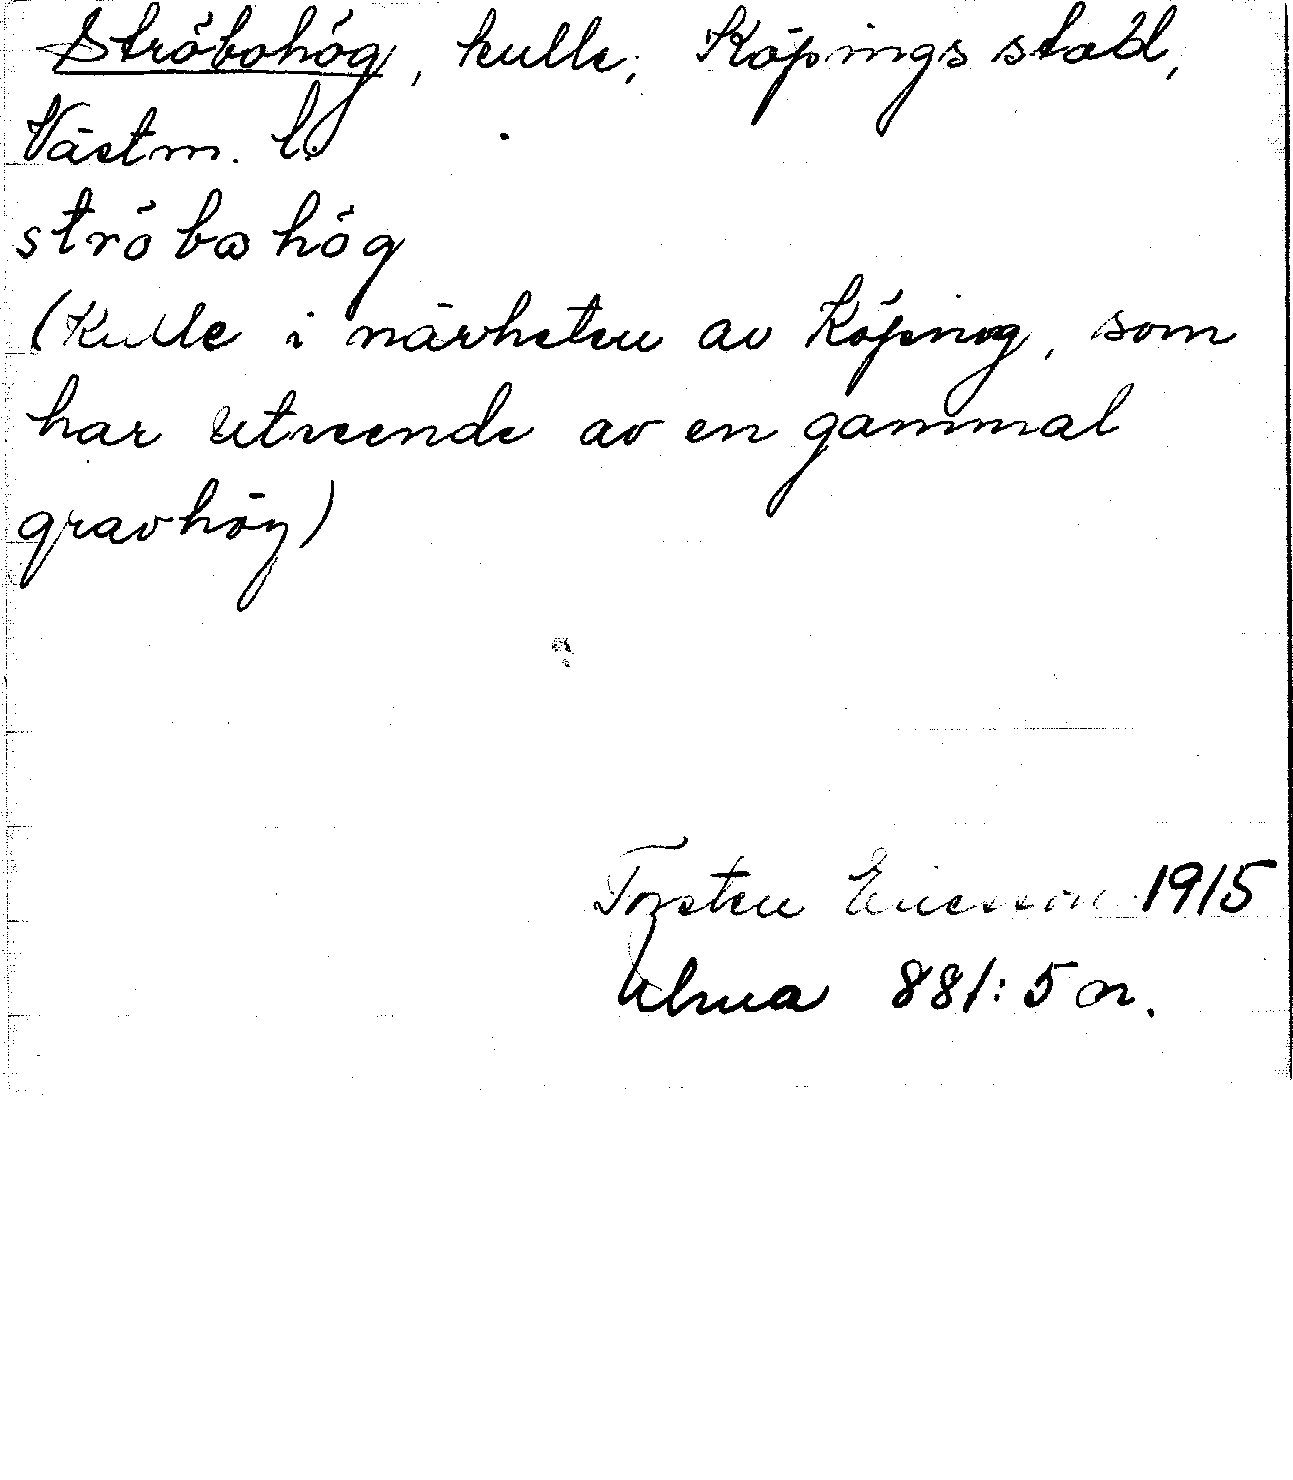 Ströbohög, kulle, Köpings stad,
Västm. l.
ströbohög
(Kulle i närheten av Köping, som
har utseende av en gammal
gravhög)
Torsten Ericsson 1915
Ulma 881:5 n.